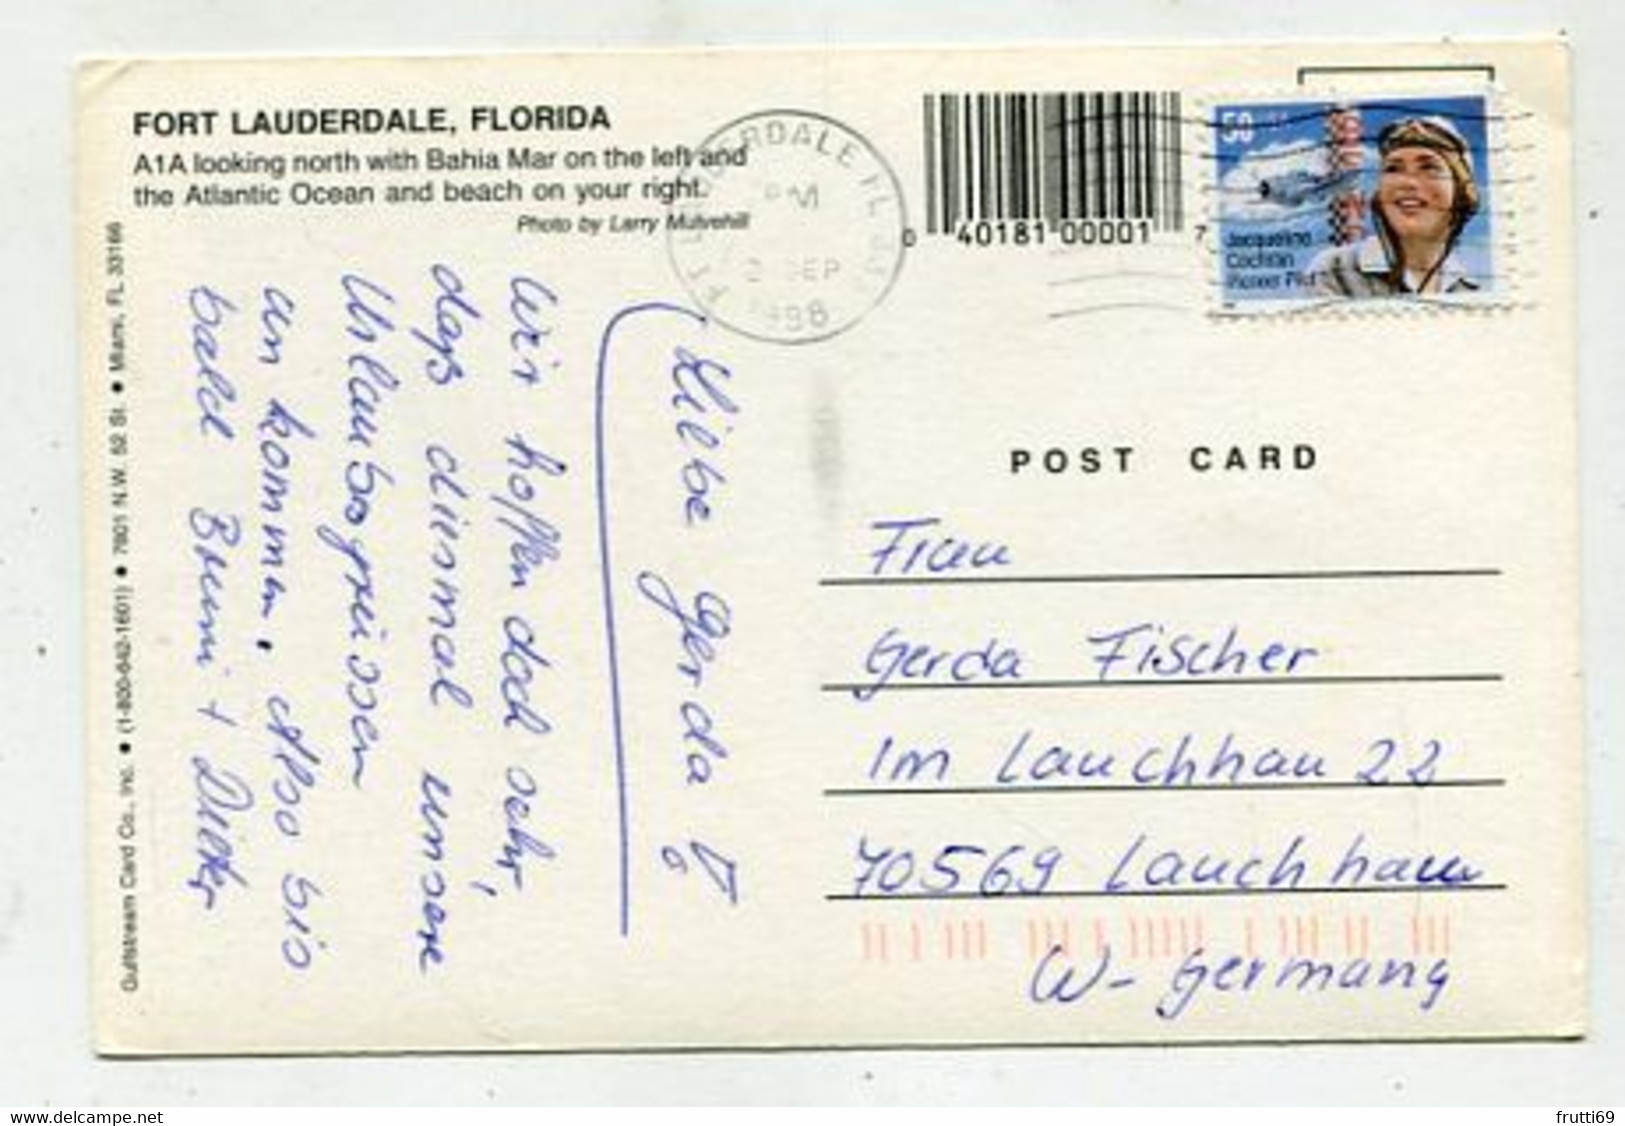 FORT LAUDERDALE, FLORIDA
A1A looking north with Bahia Mar on the left and
the Atlantic Ocean and beach on your right.
Photo by Larry Mulvehill
Liebe Gerda!
Wir hoffen doch sehr,
daß diesmal unsere
Urlaubsgreissen
an kommen. Also bis
bald Brumi + Dieter
Gulfstream Card Co., Inc. ● (1-800-842-1601) ● 7801 N.W. 52 St. ● Miami, FL 33166
FT LAUDERDALE FL
PM
2 SEP
1998
0 40181 00001 7
50
Jacqueline
Cochran
Pioneer Pilot
POST CARD
Frau
Gerda Fischer
Im Lauchhau 22
70569 Lauchhau
W-Germany
delcampe.net
frutti69